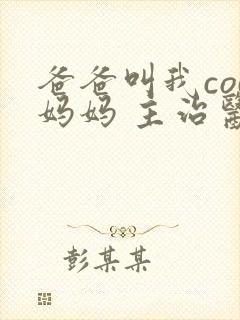 爸爸叫我co
妈妈 主治
彭某某